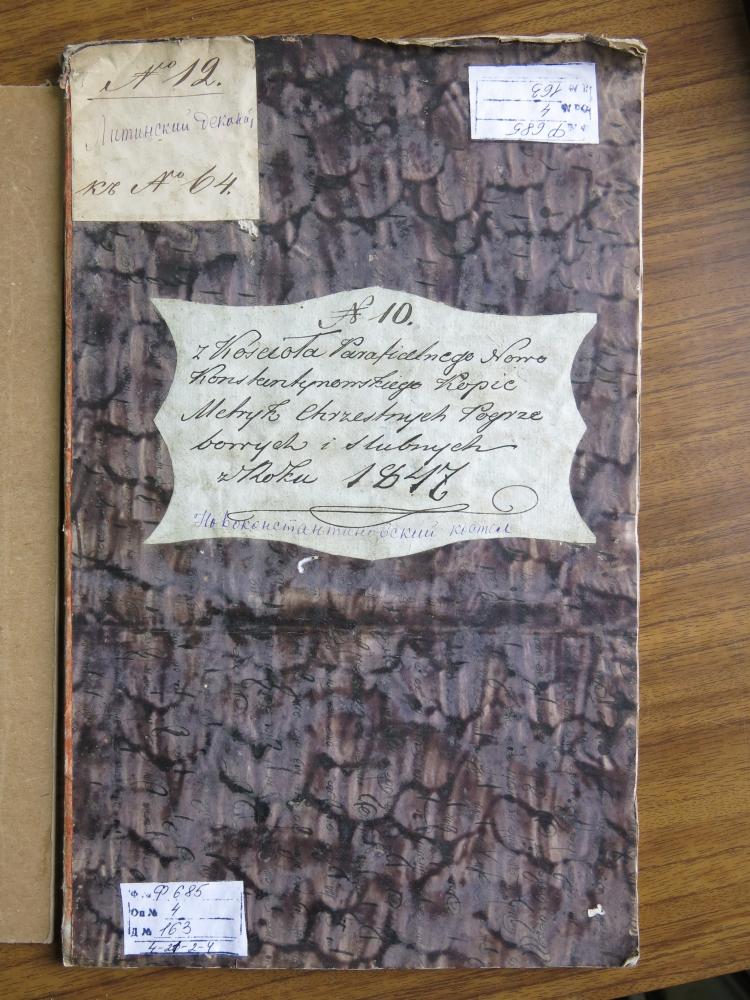 № 12.
Литинский декана,
къ № 64.
Ф 685
4
163
№ 10.
z Kościoła Parafialnego Nowo
Konstantynowskiego Kopie
Metryk Chrzestnych Pogrze
bowych i slubnych
z Roku 1847
Новоконстантиновский костел
Ф. № Ф 685
Оп № 4
Д № 163
4-21-2-4